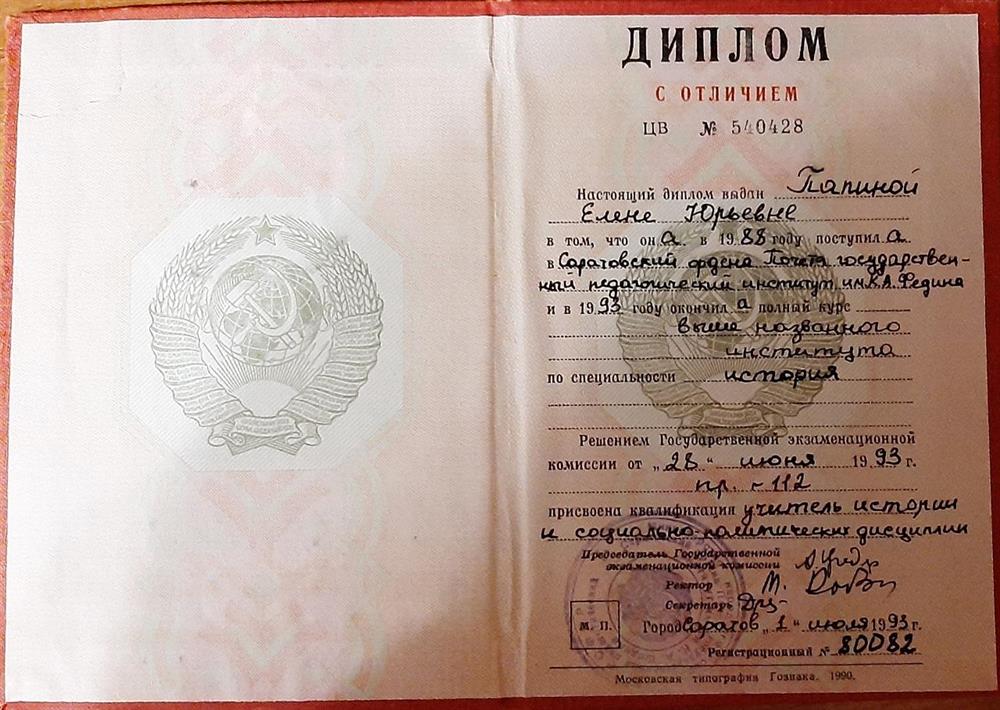 ДИПЛОМ
С ОТЛИЧИЕМ
ЦВ № 540428
Настоящий диплом выдан Папиной
Елене Юрьевне
в том, что он а в 1988 году поступил а
в Саратовский ордена Почета государствен-
ный педагогический институт им.К.А.Федина
и в 1993 году окончил а полный курс
выше названного
института
по специальности история
Решением Государственной экзаменационной
комиссии от „28“ июня 1993 г.
пр. № 112
присвоена квалификация учитель истории
и социально-политических дисциплин
Председатель Государственной
экзаменационной комиссии
Ректор
Секретарь
М. П.
Город Саратов „1“ июля 1993 г.
Регистрационный № 80082
Московская типография Гознака. 1990.